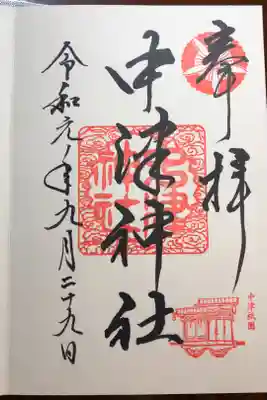 奉拝
中津神社
中津神社
令和元年九月二十九日
中津祇園